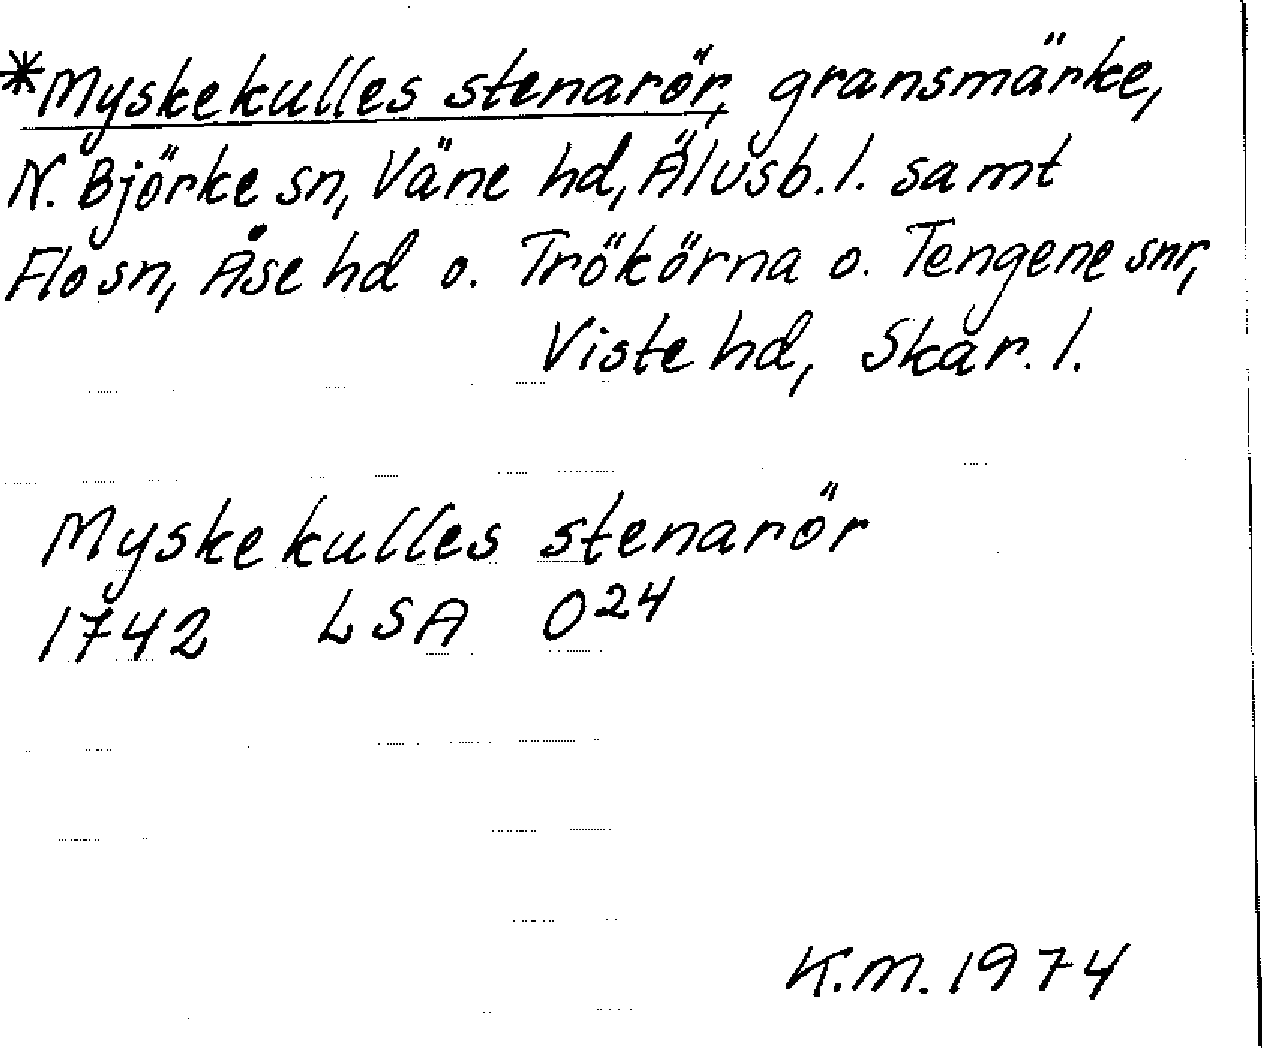 *Myskekulles stenarör, gransmärke,
N. Björke sn, Väne hd, Älvsb. l. samt
Flo sn, Åse hd o. Trökörna o. Tengene snr,
Viste hd, Skar. l.
Myskekulles stenarör
1742 LSA O24
K.M. 1974